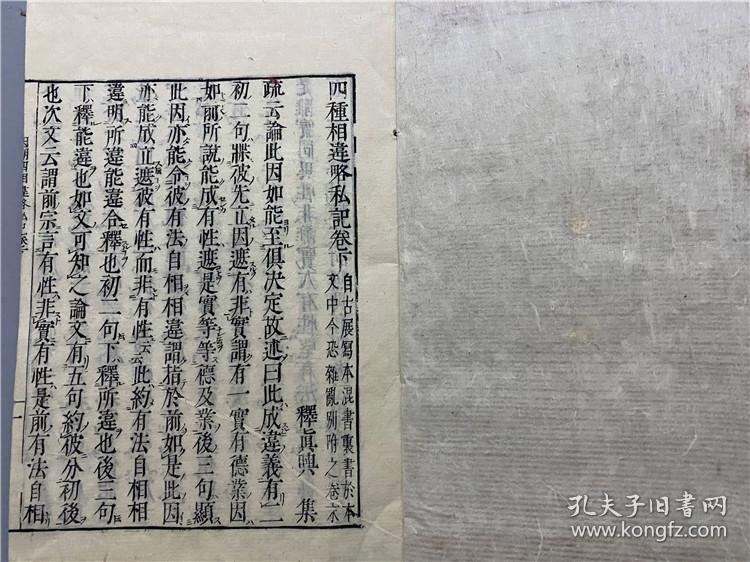 四種相違略私記卷下
自古展寫本混書裏書於本
文中今恐雜亂別附之卷末
釋眞興 集
疏云論此因如能至俱決定故述曰此成違義有二
初二句牒彼先立因遮有非實謂有一實有德業因
如前所說能成有性遮是實等等德及業後三句顯
此因亦能令彼有法自相相違謂指於前如是此因
亦能成立遮彼有性而非有性云云此約有法自相相
違明所違能違合釋也初二句下釋所違也後三句
下釋能違也如文可知之論文有五句約彼分初後
也次文云謂前宗言有性非實有性是前有法自相
孔夫子旧书网
www.kongfz.com